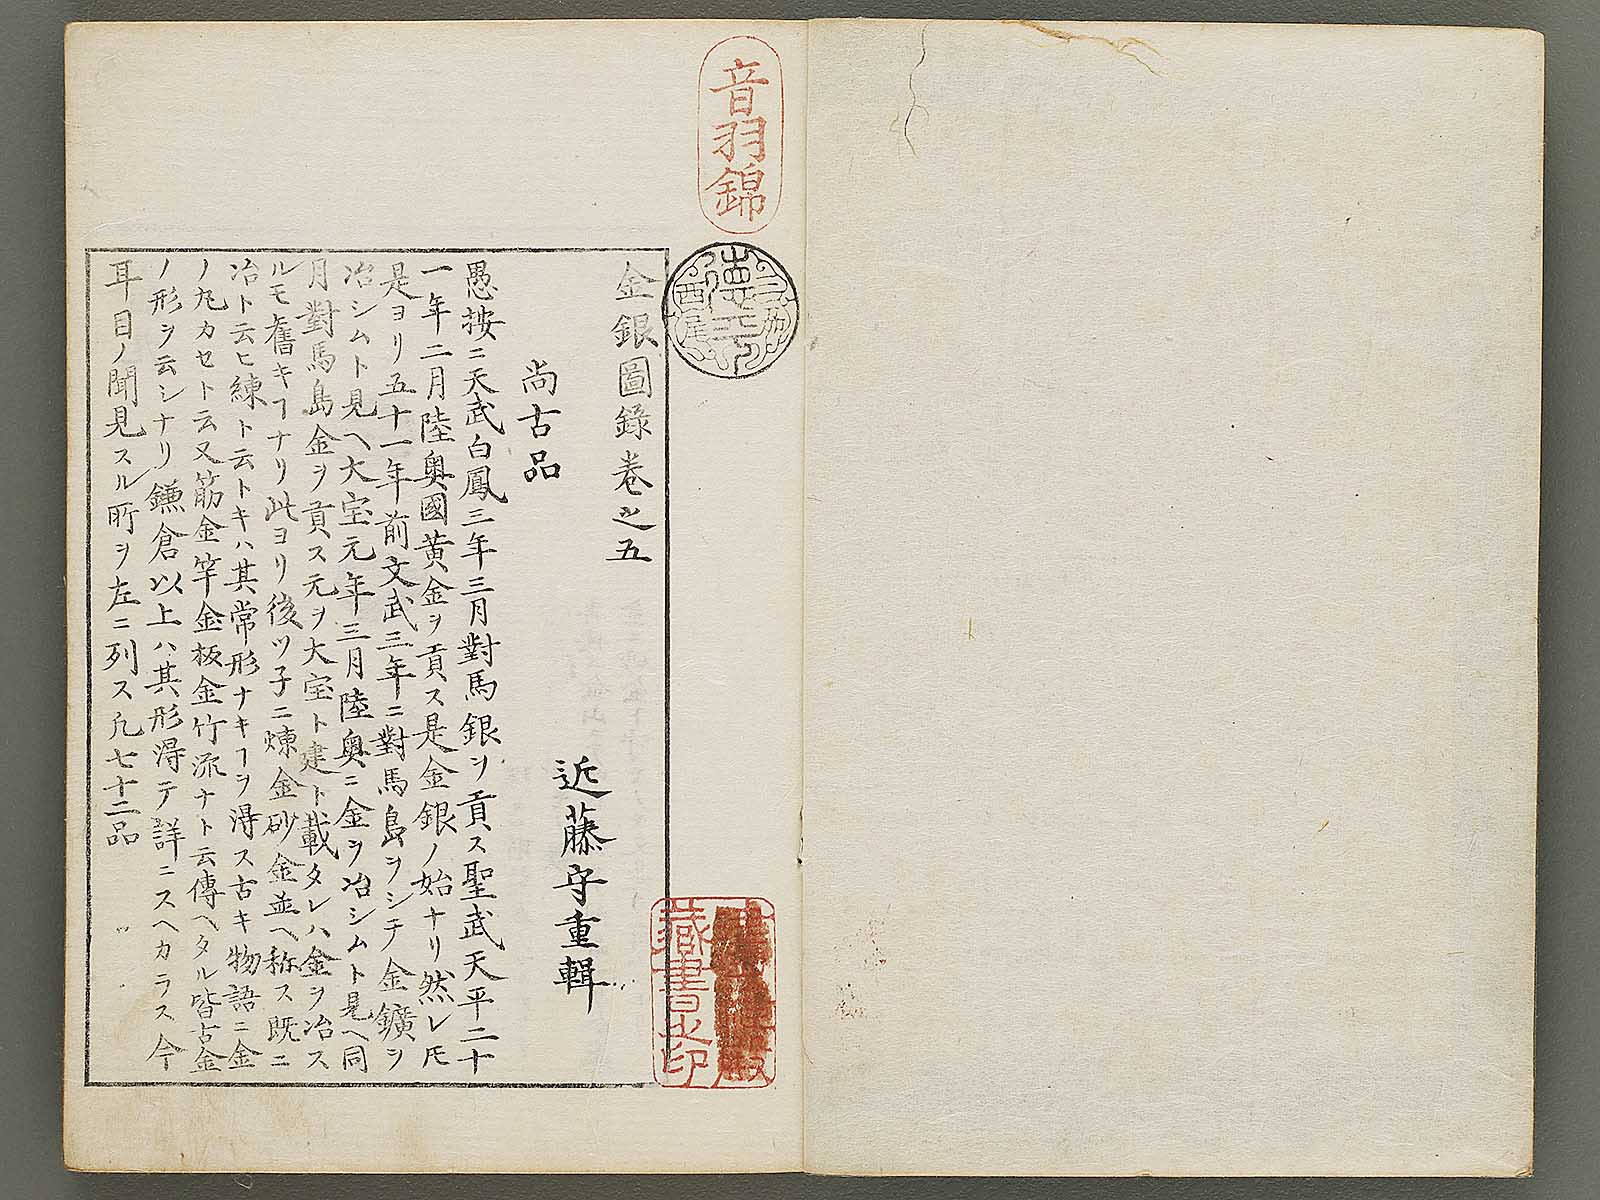 音羽錦
金銀圖錄卷之五
近藤守重輯
尚古品
愚按ニ天武白鳳三年三月對馬銀ヲ貢ス聖武天平二十
一年二月陸奥國黄金ヲ貢ス是金銀ノ始ナリ然レ𪜈
是ヨリ五十一年前文武三年ニ對馬島ヲシテ金鑛ヲ
冶シムト見ヘ大宝元年三月陸奥ニ金ヲ冶シムト見ヘ同
月對馬島金ヲ貢ス元ヲ大宝ト建ト載タレハ金ヲ冶ス
ルモ舊キヿナリ此ヨリ後ツ子ニ煉金砂金並ヘ称ス既ニ
冶ト云ヒ練ト云トキハ其常形ナキヿヲ得ス古キ物語ニ金
ノ丸カセト云又筋金竿金板金竹流ナト云傳ヘタル皆古金
ノ形ヲ云シナリ鎌倉以上ハ其形得テ詳ニスヘカラス今
耳目ノ聞見スル所ヲ左ニ列ス凡七十二品
藏書之印
西尾